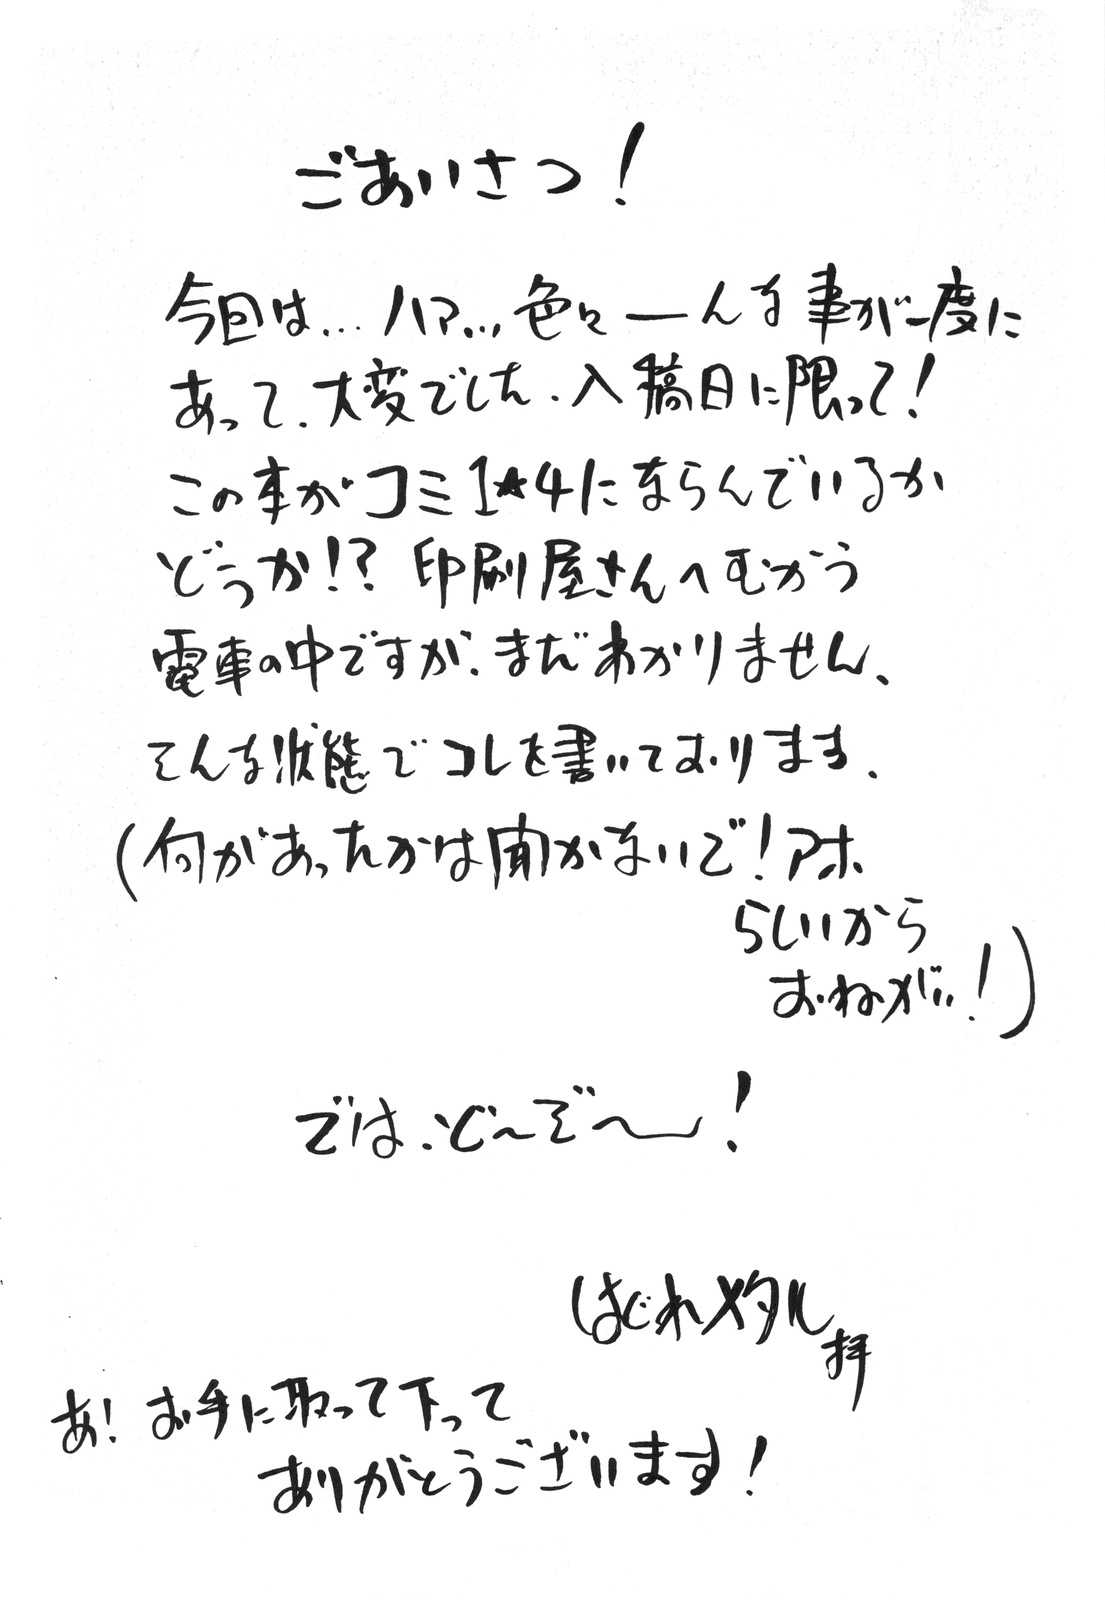 ごあいさつ!
今回は...ハァ...色々ーんな事が一度に
あって、大変でした、入稿日に限って!
この本がコミ1☆4にならんでいるか
どうか!?印刷屋さんへむかう
電車の中ですが、まだわかりません、
そんな状態でコレを書いております、
(何があったかは聞かないで!アホ
らしいから
おねがい!)
では、ど〜ぞ〜!
はぐれメタル
拝
あ!お手に取って下って
ありがとうございます!